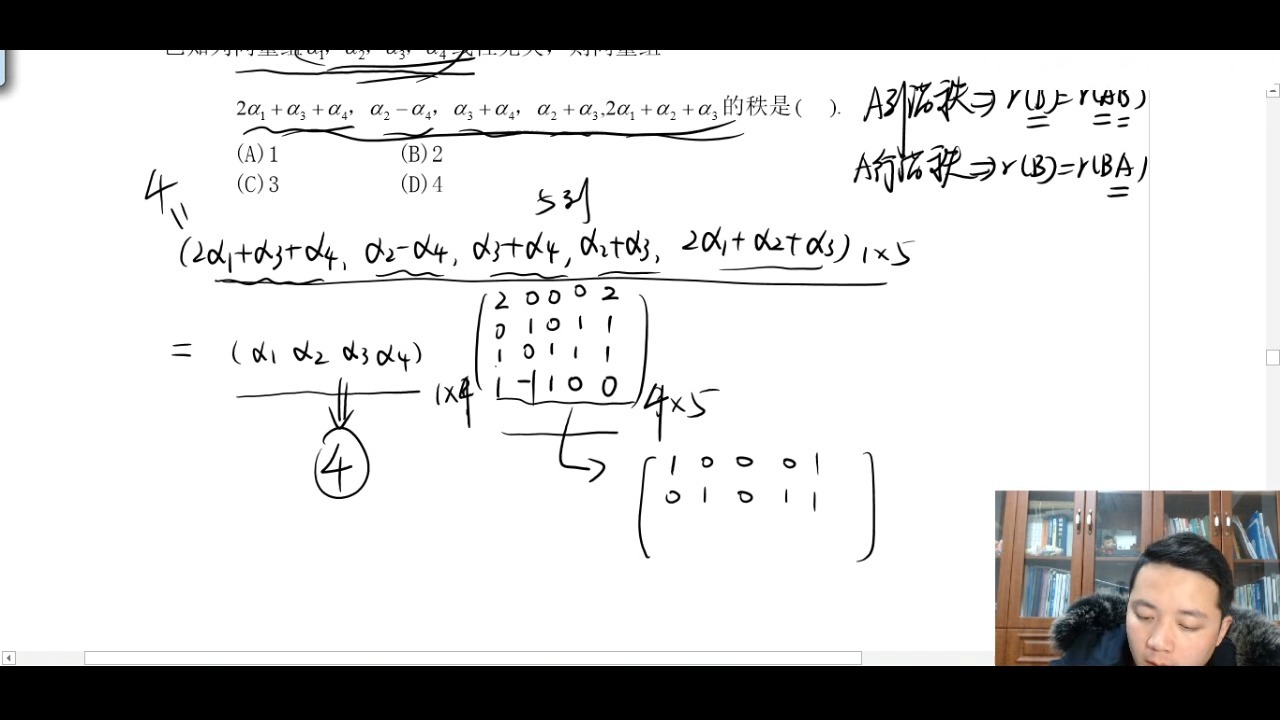 已知列向量组α₁, α₂, α₃, α₄线性无关, 则向量组
2α₁+α₃+α₄, α₂-α₄, α₃+α₄, α₂+α₃,2α₁+α₂+α₃的秩是( ).
(A)1 (B)2
(C)3 (D)4
A列满秩⇒r(B)=r(AB)
A行满秩⇒r(B)=r(BA)
4
=
5列
(2α₁+α₃+α₄, α₂-α₄, α₃+α₄, α₂+α₃, 2α₁+α₂+α₃)1×5
= (α₁ α₂ α₃ α₄)1×4
2 0 0 0 2
0 1 0 1 1
1 0 1 1 1
1 -1 1 0 0
4×5
4
1 0 0 0 1
0 1 0 1 1